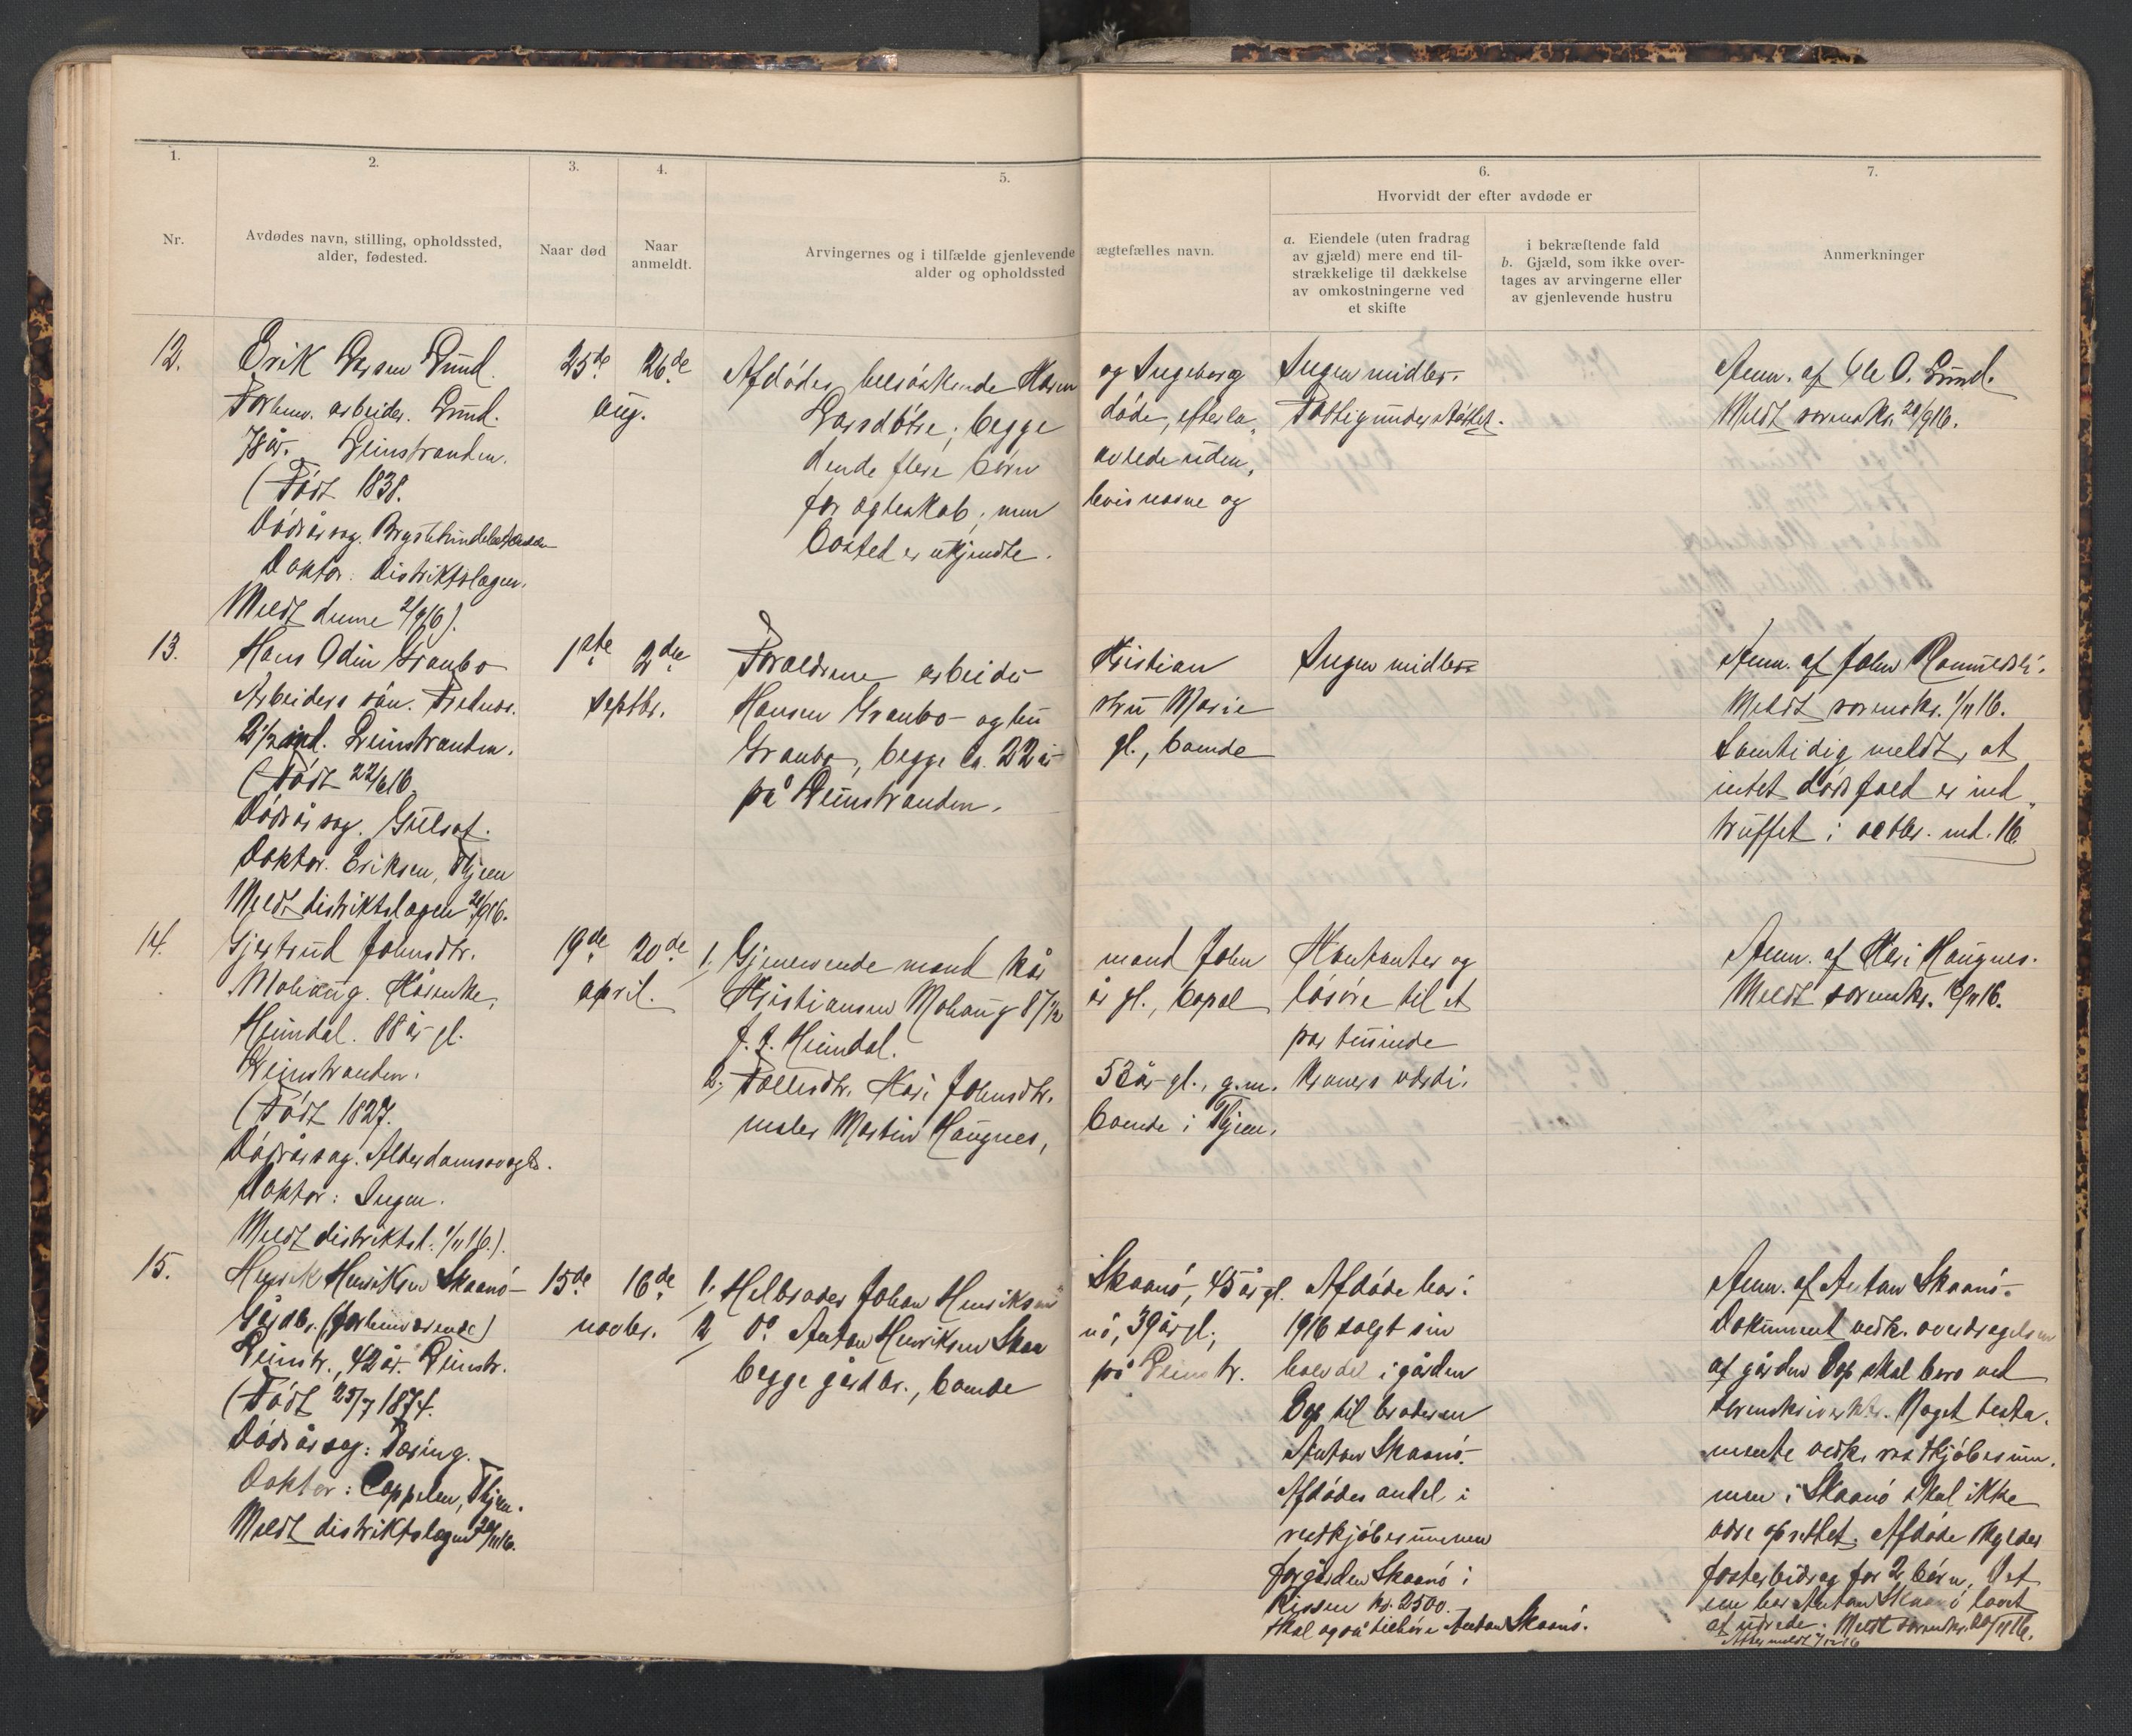 1.
2.
3.
4.
5.
6.
7.
Nr.
Avdødes navn, stilling, opholdssted,
alder, fødested.
Naar død
Naar
anmeldt.
Arvingernes og i tilfælde gjenlevende ægtefælles navn.
alder og opholdssted
Hvorvidt der efter avdøde er
a. Eiendele (uten fradrag
av gjæld) mere end til-
strækkelige til dækkelse
av omkostningerne ved
et skifte
i bekræftende fald
b. Gjæld, som ikke over-
tages av arvingerne eller
av gjenlevende hustru
Anmerkninger
12.
Erik Larsen Lund.
Forhenv. arbeider. Lund.
78 år. Leinstranden.
(Født 1838.
Dødsårsag.
Doktor: Distriktslægen.
Meldt denne 2/9 16).
25de
26de
aug.
Afdødes helsøskende Karen og Ingeborg
Larsdøtre; begge døde, efterla-
dende flere børn avlede uden-
for ægteskab, men hvis navne og
bosted er ukjendte.
Ingen midler.
Fattigunderstøttet.
Anm. af Ole O. Lund.
Meldt sorenskr. 20/9 16.
13.
Hans Odin Granbo
Arbeiders søn.
2 1/2 md. Leinstranden.
(Født 22/6 16.
Dødsårsag. Gulsot.
Doktor. Eriksen, Thjem
Meldt distriktslægen 20/9 16.
1ste
2den
septbr.
Forældrene arbeider Kristian
Hansen Granbo og hustru Marie
Granbo, begge ca. 22 år gl., boende
på Leinstranden.
Ingen midler
Anm. af John
Meldt sorenskr. 1/11 16.
Samtidig meldt, at
intet dødsfald er ind-
truffet i octbr. md. 16
14.
Gjertrud Johnsdtr.
Mohaug. Kårenke,
Heimdal. 88 år gl.
Leinstranden.
(Født 1827.
Dødsårsag. Alderdomssvagh.
Doktor: Ingen.
Meldt distriktsl. 1/11 16.).
19de
20de
april.
1. Gjenlevende mand kårmand John
Kristiansen Mohaug 87 1/2 år gl., bopæl
p. t. Heimdal.
2. Fællesdtr. Kari Johnsdtr. 53 år gl., g. m.
maler Martin Haugnes, boende i Thjem.
Kontanter og
løsøre til et
par tusinde
kroners værdi.
Anm. af Kari Haugnes.
Meldt sorenskr. 16.
15.
Henrik Henriksen Skaanø
Gårdbr. (forhenværende)
Leinstr., 42 år. Leinstr.
(Født 25/7 1874.
Dødsårsag: Tæring.
Doktor: Coppelen, Thjem.
Meldt distriktslægen 20/11 16.
15de
16de
novbr.
1. Helbroder Johan Henriksen Skaanø, 45 år gl.
2. Do Anton Henriksen Skaanø, 39 år gl.,
begge gårdbr., boende på Leinstr.
Afdøde har i
1916 solgt sin
halvdel i gården
Dop til broderen
Anton Skaanø.
Afdødes andel i
restkjøbesummen
for gården Skaanø i
Rissen kr. 2500.
skal også tilhøre Anton Skaanø.
Anm. af Anton Skaanø.
Dokument vedk. overdragelsen
af gården Dop skal bero ved
Noget testa-
mente vedk. restkjøbesum-
men i Skaanø skal ikke
være oprettet. Afdøde skylder
fosterbidrag for 2 børn. Det
ene har Anton Skaanø lovet
at udrede. Meldt sorenskr. 20/11 16.